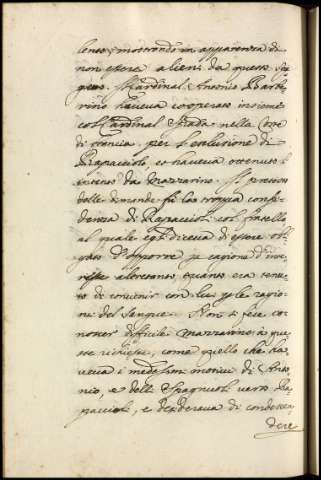 lenso, mostrando in apparenza di
non essere alieni da questo
Il Cardinal Antonio Barbe
rino haueua cooperato insieme
col Cardinal Spada nella Corte
di francia per l'esclusione di
Rapaccioli et haueua ottenuto l'
intento da Mazzarino. Il
delle dimande fù la troppa confi
denza di Rapaccioli col fratello
al quale egli diceua di essere obli
gato d'opporsi p cagione d'inte
resse altretanto quanto era tenu
to di conuenir con lui p le ragio
ni del sangue. Non si fece co
noscer difficile Mazzarino à que
ste richieste, come quello che ha
ueua i medesimi motiui di Anto
nio, e delli Spagnuoli uerso Ra
paccioli, e desideraua di condescen
dere